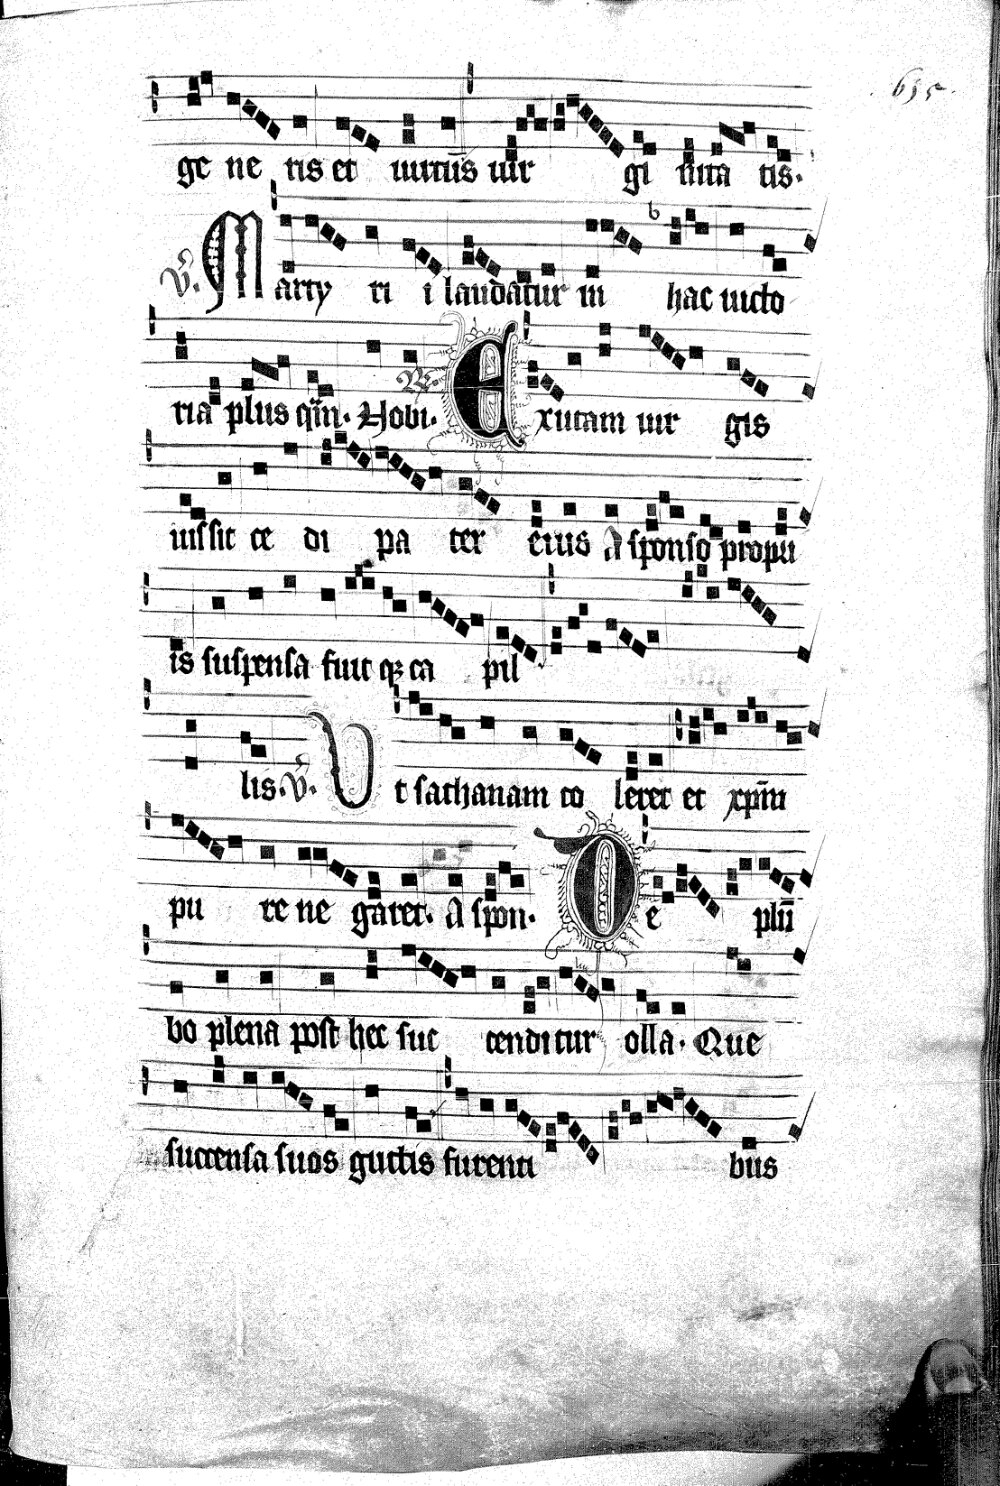 655
ge ne ris et uirtutis uir gi nita tis.
V. Marty ri i laudatur in hac uicto
ria plus qm̄. Nobi. R. Exutam uir gis
iussit ce di pa ter eius A sponso propri
is suspensa fuit qz ca pil
lis. V. Ut sathanam co leret et xp̄m
pu re ne garet. A spon. De plū
bo plena post hec suc cenditur olla. Que
succensa suos guttis furenti bus